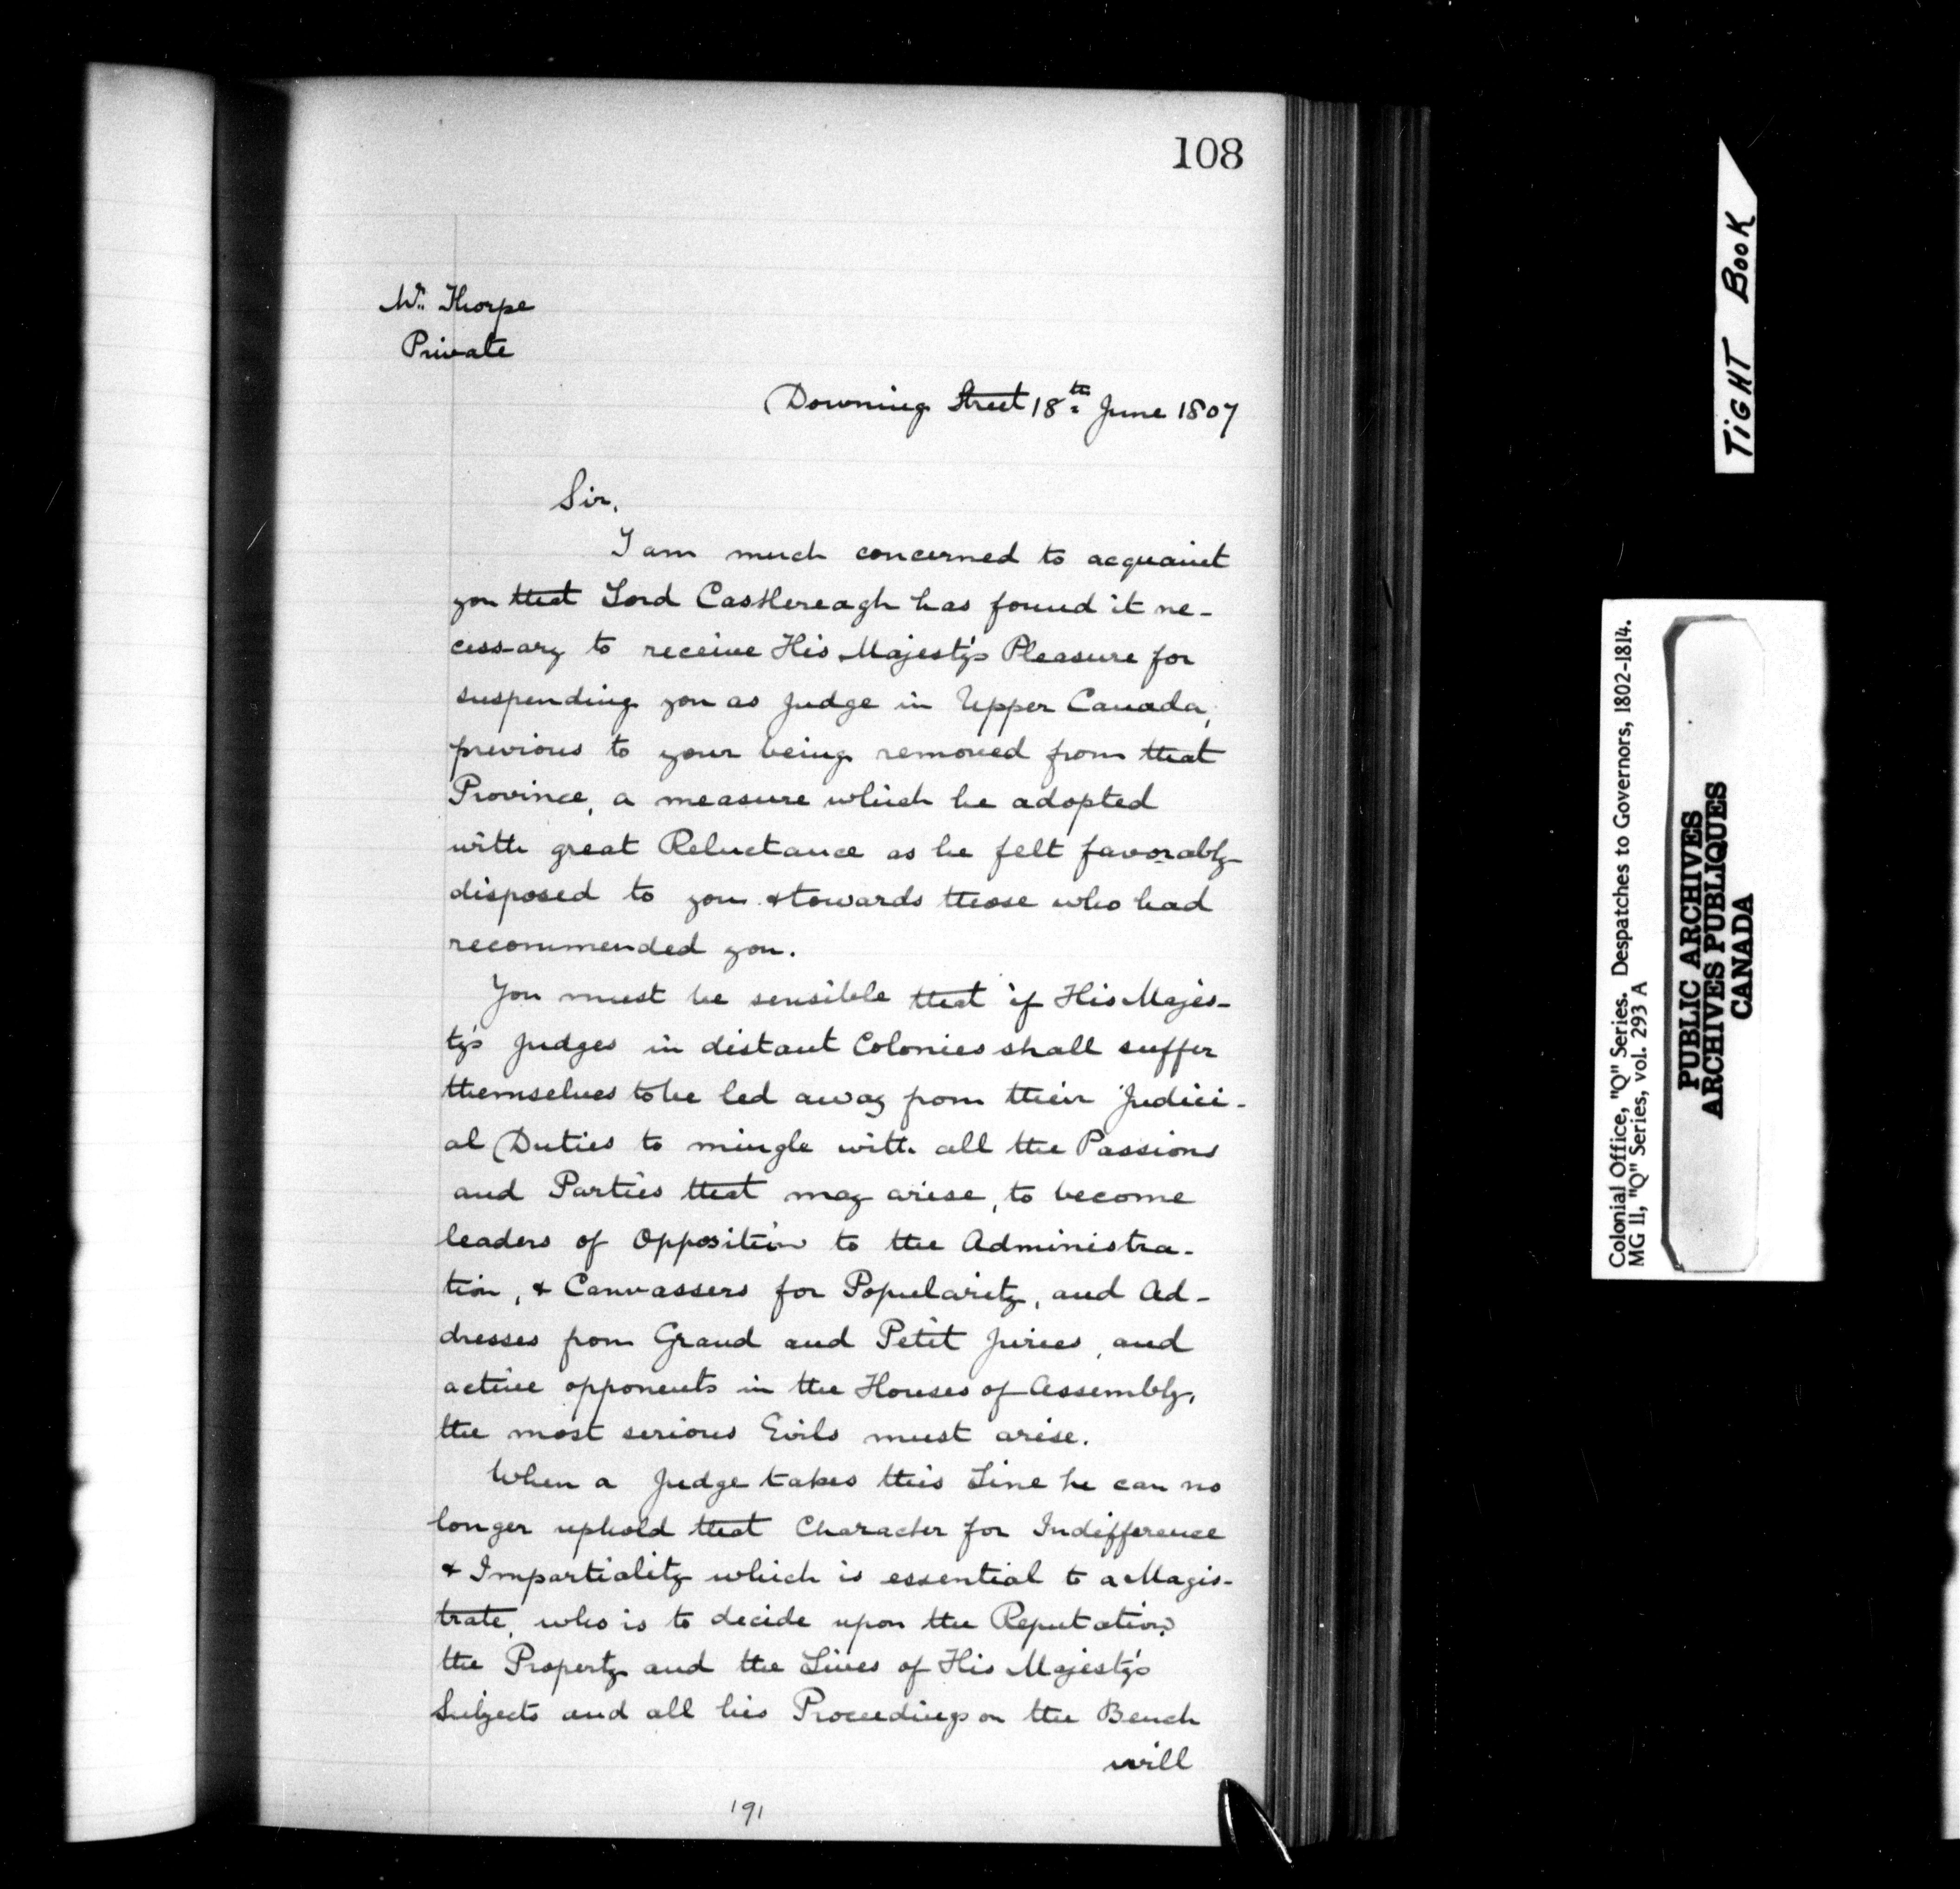 108
Mr. Thorpe
Private
Downing Street 18th June 1807
Sir,
I am much concerned to acquaint
you that Lord Castlereagh has found it ne-
cessary to receive His Majesty's Pleasure for
suspending you as Judge in Upper Canada,
previous to your being removed from that
Province, a measure which he adopted
with great Reluctance as he felt favorably
disposed to you & towards those who had
recommended you.
You must be sensible that if His Majes-
ty's Judges in distant Colonies shall suffer
themselves to be led away from their Judici-
al Duties to mingle with all the Passions
and Parties that may arise, to become
leaders of Opposition to the Administra-
tion, & Canvassers for Popularity, and Ad-
dresses from Grand and Petit Juries, and
active opponents in the Houses of Assembly,
the most serious Evils must arise.
When a Judge takes this Line he can no
longer uphold that Character for Indifference
& Impartiality which is essential to a Magis-
trate, who is to decide upon the Reputation,
the Property and the Lives of His Majesty's
Subjects and all his Proceedings on the Bench
will
191
TIGHT BOOK
Colonial Office, "Q" Series. Despatches to Governors, 1802-1814.
MG 11, "Q" Series, vol. 293 A
PUBLIC ARCHIVES
ARCHIVES PUBLIQUES
CANADA